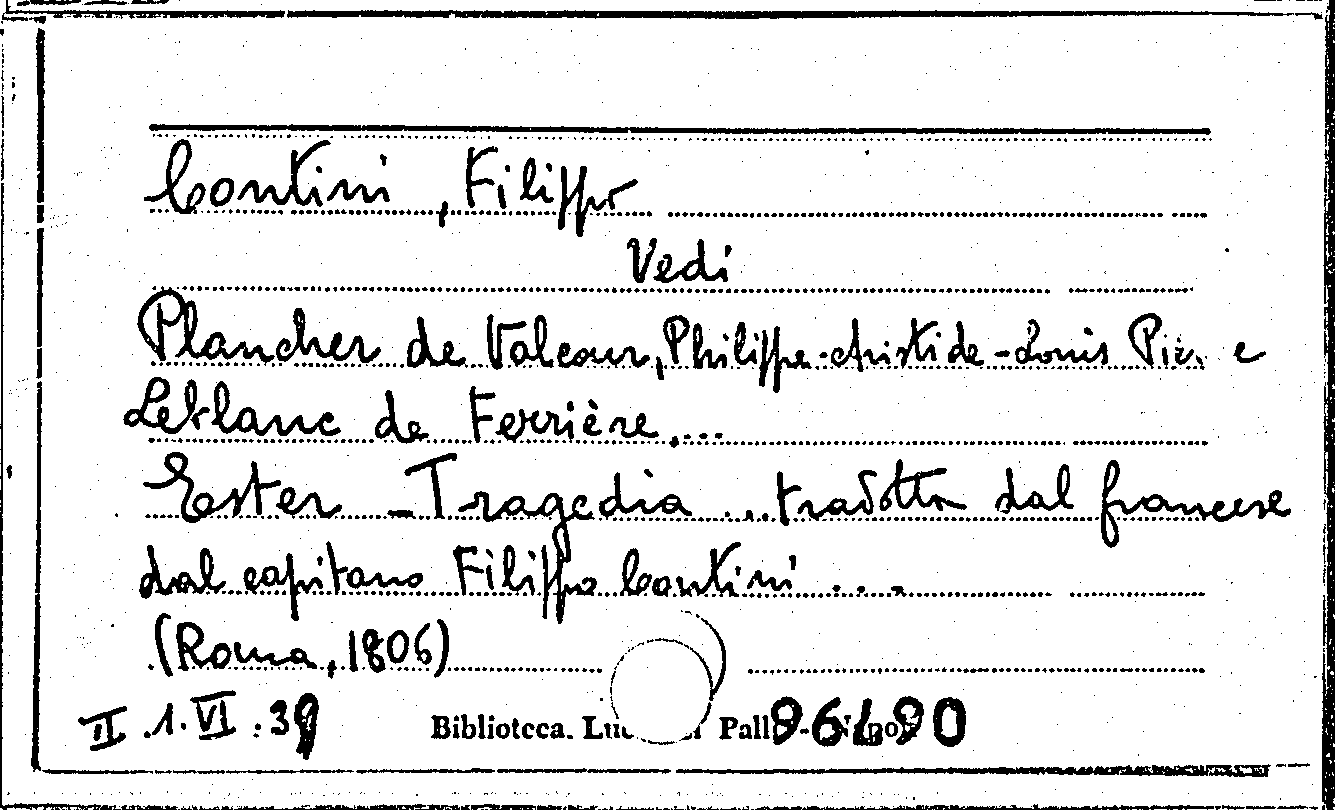 Contini, Filippo
Vedi
Plancher de Valcour, Philippe-Aristide-Louis Pie. e
Leblanc de Ferrière,...
Ester - Tragedia ... tradotta dal francese
dal capitano Filippo Contini ...
(Roma, 1806)
II .1. VI .39 Biblioteca. Pall